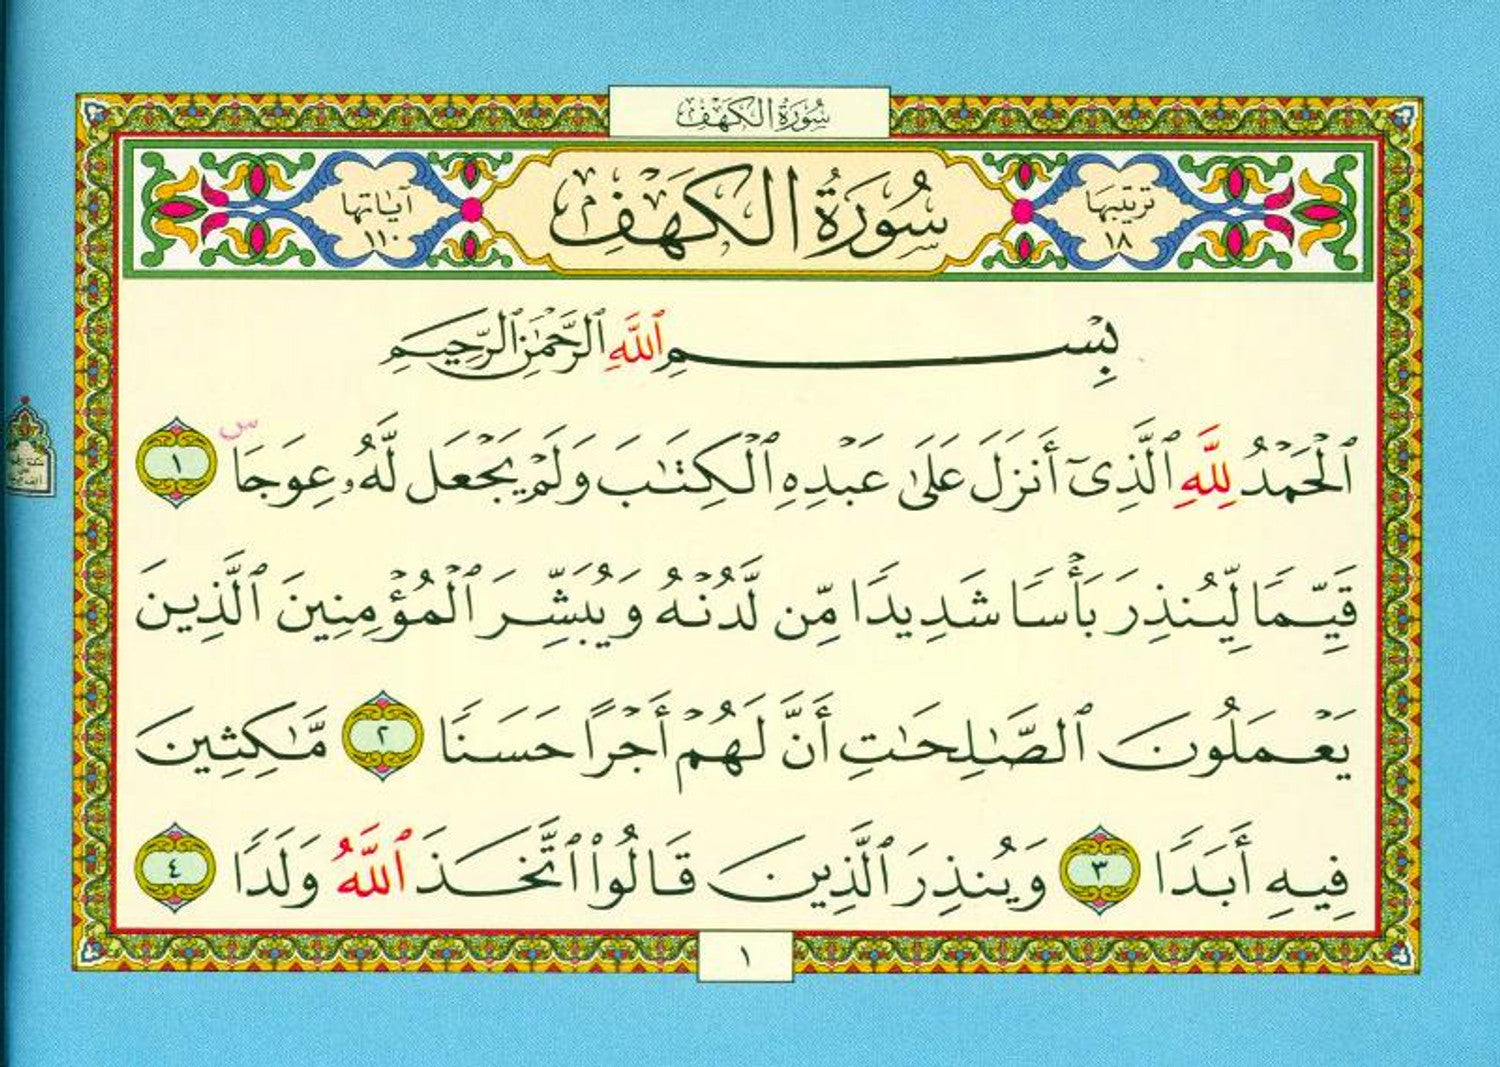 سُورَةُ الكَهْفِ
تَرتيبُهَا
١٨
سُورَةُ الكَهْفِ
آيَاتُها
١١٠
بِسْمِ ٱللَّهِ ٱلرَّحْمَٰنِ ٱلرَّحِيمِ
ٱلْحَمْدُ لِلَّهِ ٱلَّذِىٓ أَنزَلَ عَلَىٰ عَبْدِهِ ٱلْكِتَٰبَ وَلَمْ يَجْعَل لَّهُۥ عِوَجَاۜ ١
قَيِّمًا لِّيُنذِرَ بَأْسًا شَدِيدًا مِّن لَّدُنْهُ وَيُبَشِّرَ ٱلْمُؤْمِنِينَ ٱلَّذِينَ
يَعْمَلُونَ ٱلصَّٰلِحَٰتِ أَنَّ لَهُمْ أَجْرًا حَسَنًا ٢ مَّٰكِثِينَ
فِيهِ أَبَدًا ٣ وَيُنذِرَ ٱلَّذِينَ قَالُوا۟ ٱتَّخَذَ ٱللَّهُ وَلَدًا ٤
١